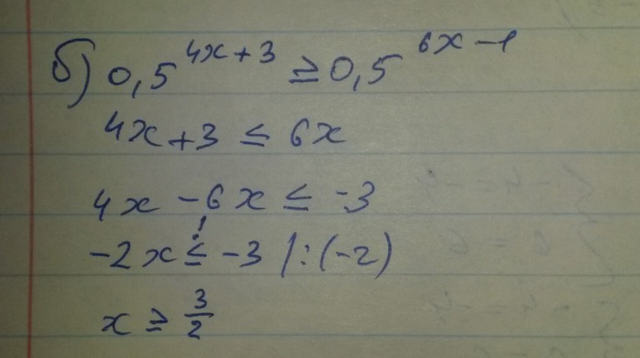 б) 0,5^(4x+3) ≥ 0,5^(6x-1)
4x+3 ≤ 6x
4x - 6x ≤ -3
!
-2x ≤ -3 |:(-2)
x ≥ 3/2